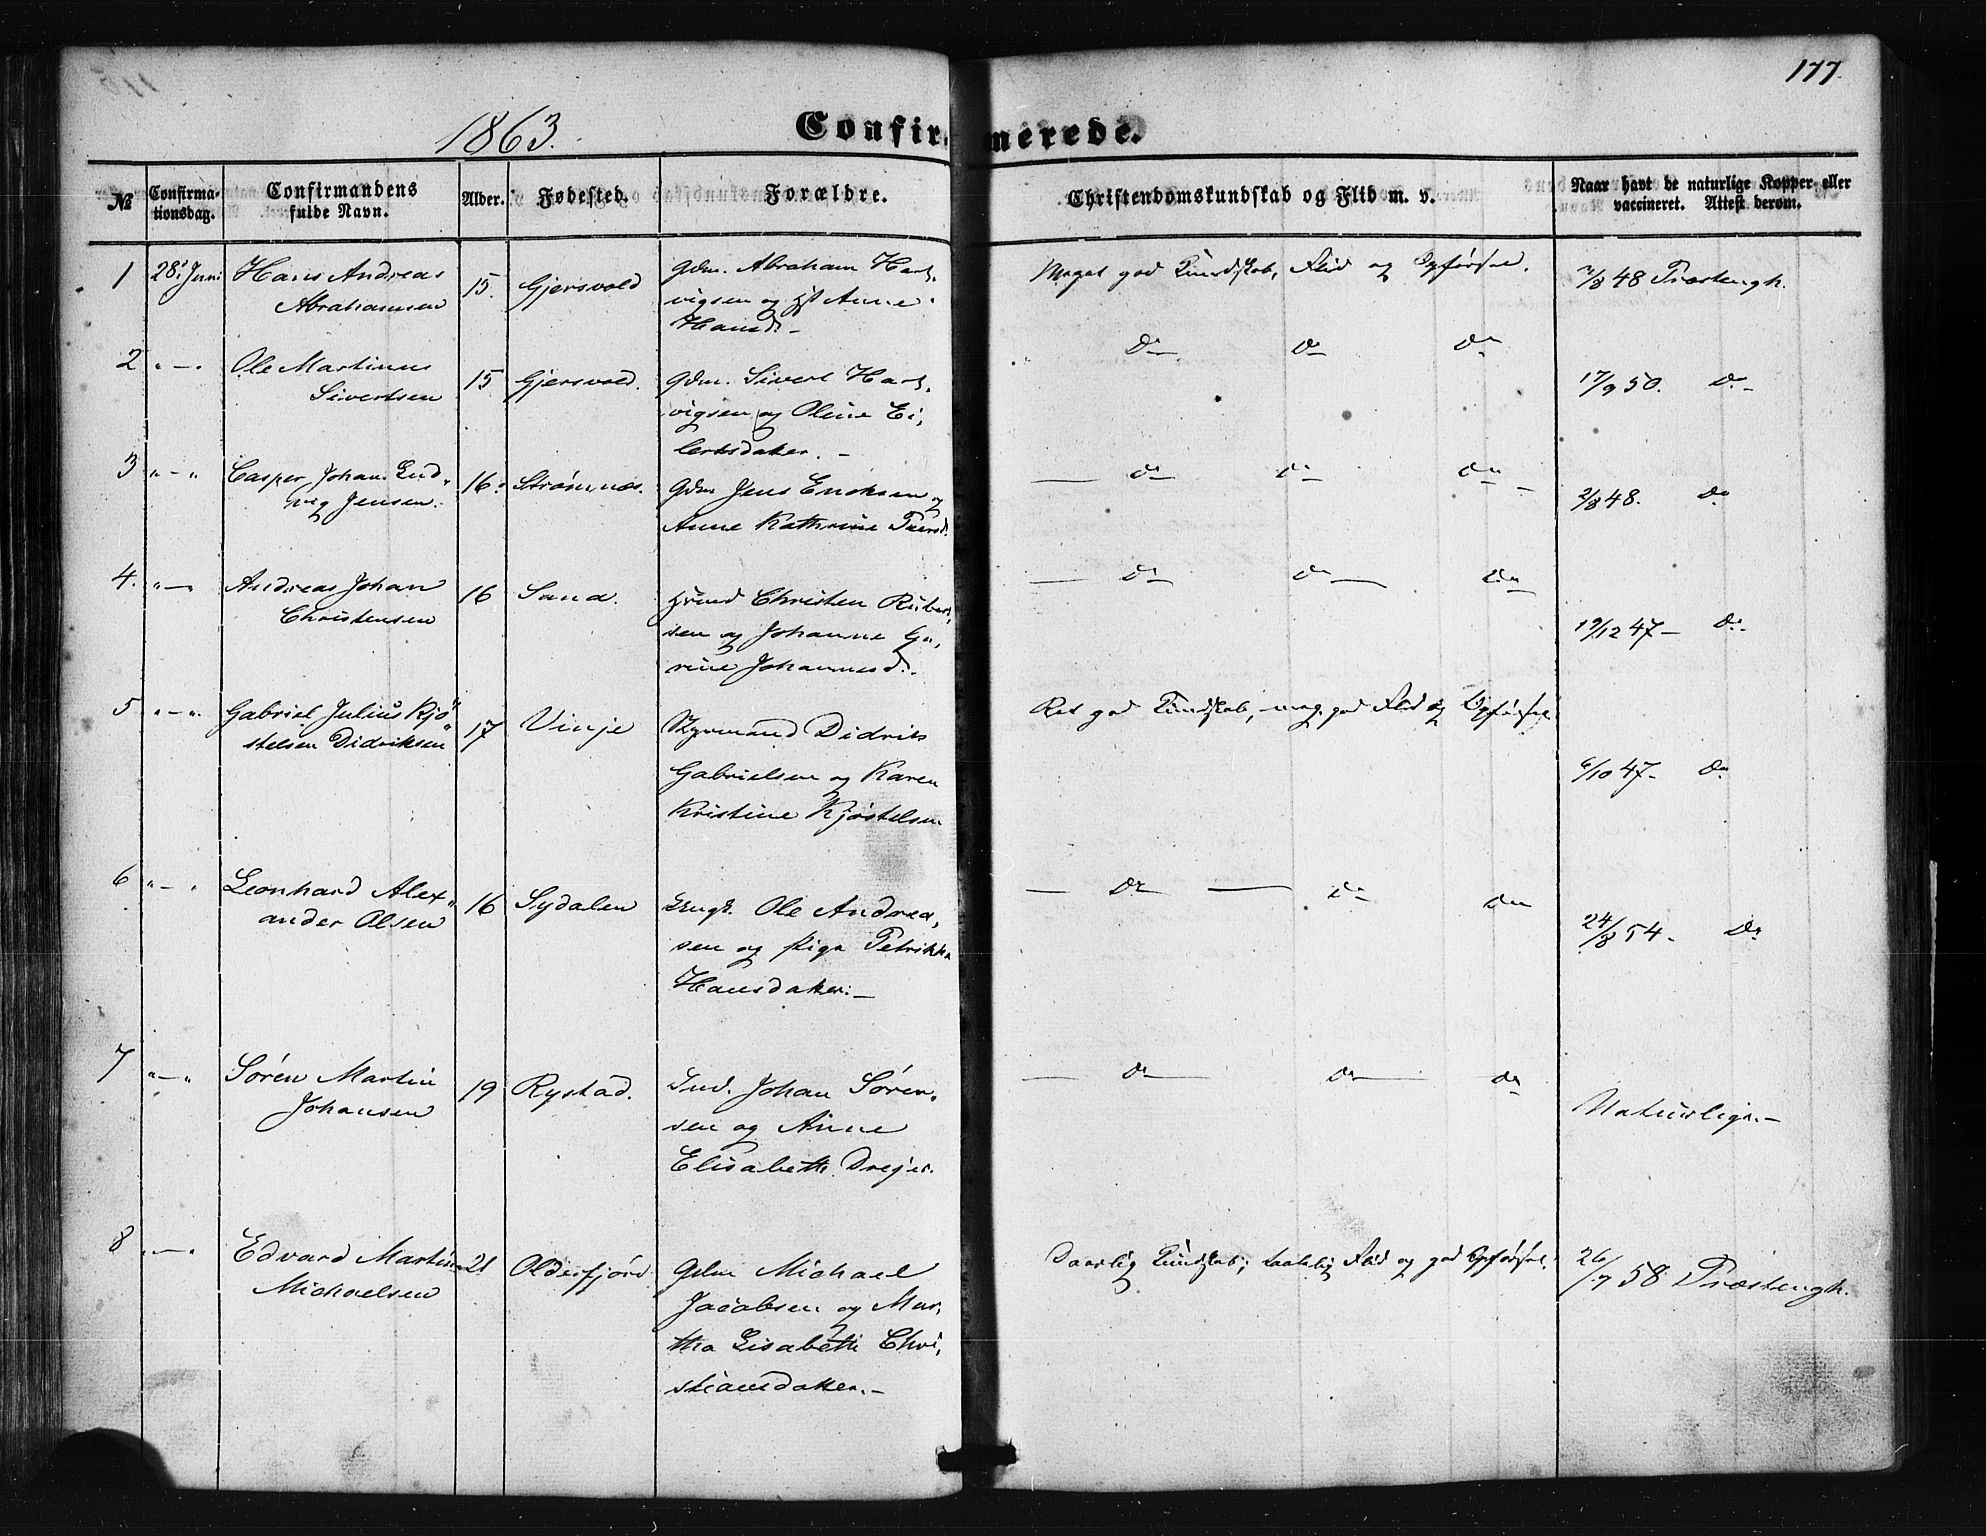 177.
1863.
Confirmerede.
№
Confirma-
tionsdag.
Confirmandens
fulde Navn.
Alder.
Fødested.
Forældre.
Christendomskundskab og Flid m. v.
Naar havt de naturlige Kopper eller
vaccineret. Attest derom.
1 28' Juni Hans Andreas
Abrahamsen
15. Gjersvold
Gdm. Abraham Hart,
vigsen og Anne
Hansd. –
Meget god Kundskab, Flid og Opførsel.
48 Præstengh.
2 " – " Ole Martinus
Sivertsen
15 Gjersvold.
Gdm. Sivert Hart,
vigsen og Oline Ei,
lertsdatter. –
Do Do Do
17/9 50. Do –
3 " – " Casper Johan Lud"
vig Jensen.
16. Strømnæs.
Gdm Jens Ericksen og
Anne Kathrine Peersd.
Do Do Do
2/8 48. Do
4. " – " Andreas Johan
Christensen
16 Sand.
Christen
sen og Johanne Ga,
rine Johannesd. –
Do Do Do
19/12 47 – Do
5 " – " Gabriel Julius Kjø"
stelsen Didriksen
17 Vinje
Styrmand Didrik
Gabrielsen og Karen
Kristine Kjøstelsen
Ret god Kundskab, meg. god Flid og Opførsel.
6/10 47 – Do
6 " – " Leonhard Alex"
ander Olsen
16 Sydalen
Ungk. Ole Andrea,
sen og Pige Petrikka
Hansdatter. –
Do Do Do
24/8 54 – Do
7 " – " Søren Martin
Johansen
19 Rystad.
Ind. Johan Søren,
sen og Anne
Elisabeth Dreyer.
Do Do Do
Naturlige. –
8 " – " Edvard Martin
Michaelsen
21 Olderfjord
Gdm Michael
Jacobsen og Mar,
tha Lisabeth Chri,
stiansdatter. –
Daarlig Kundskab; taalelig Flid og god Opførsel.
26/7 58 Præstengh.